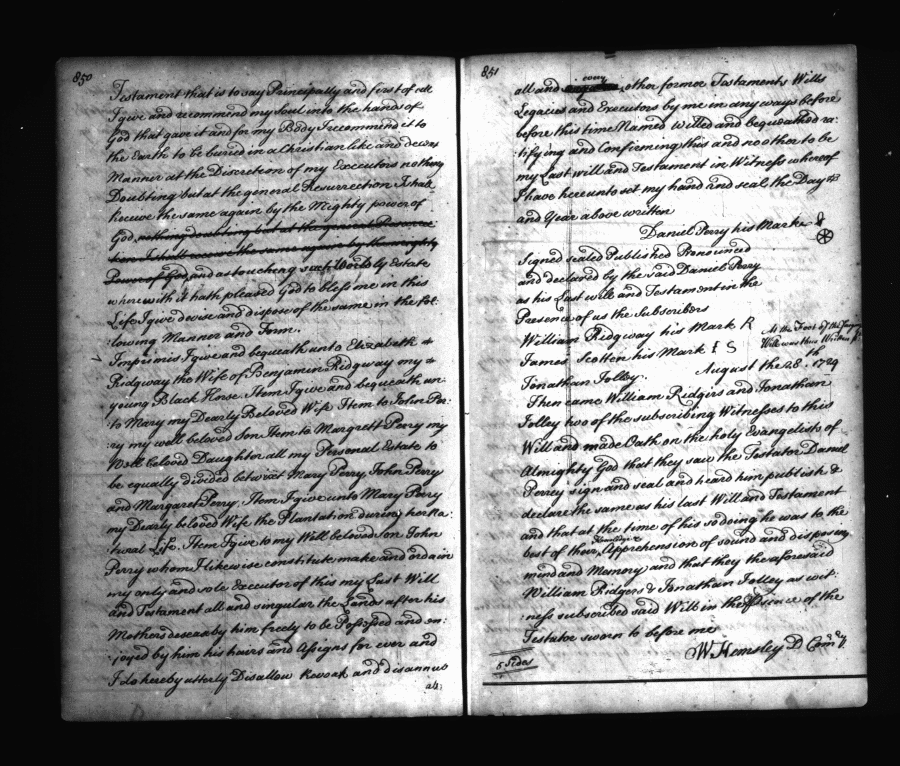 850
Testament that is to say Principally and first of all
I give and recommend my Soul into the hands of
God that gave it and for my Body I recommend it to
the Earth to be buried in a Christian like and decent
Manner at the Discretion of my Executors nothing
Doubting but at the general Resurrection I shall
Receive the same again by the Mighty power of
God nothing doubting but at the general Resurrec
tion I shall receive the same again by the mighty
Power of God and as touching such Worldly Estate
wherewith it hath pleased God to bless me in this
Life I give devise and dispose of the same in the fol:
lowing Manner and Form.
Imprimis I give and bequeath unto Elizabeth
Ridgway the Wife of Benjamin Ridgway my
young Black Horse. Item I give and bequeath un:
to Mary my Dearly Beloved Wife Item to John Per:
ry my well beloved Son Item to Margrett Perry my
Well beloved Daughter all my Personal Estate to
be equally divided betwixt Mary Perry John Perry
and Margaret Perry. Item I give unto Mary Perry
my Dearly beloved Wife the Plantation during her Na:
tural Life. Item I give to my Well beloved Son John
Perry whom I likewise constitute make and ordain
my only and sole Executor of this my Last Will
and Testament all and singular the Lands after his
Mothers deseas by him freely to be Possessed and en:
joyed by him his heirs and Assigns for ever and
I do hereby utterly Disallow Revoak and disannul
all
851
all and every other former Testaments Wills
Legacies and Executors by me in any ways before
before this time Named Willed and bequeathed ra:
tifying and Confirming this and no other to be
my Last will and Testament in Witness whereof
I have hereunto set my hand and seal the Day &
and Year above written
Daniel Perry his Marke
Signed sealed Published Pronounced
and declared by the said Daniel Perry
as his Last will and Testament in the
Presence of us the Subscribers
William Ridgway his Mark R
James Scotten his Mark I S
Jonathan Jolley.
At the Foot of the
Will was thus Written
August the 28th. 1729
Then came William Ridgers and Jonathan
Jolley two of the subscribing Witnesses to this
Will and made Oath on the holy Evangelists of
Almighty God that they saw the Testator Daniel
Perrey sign and seal and heard him publish &
declare the same as his last Will and Testament
and that at the time of his so doing he was to the
best of their knowledge & Apprehension of sound and disposing
mind and Memory and that they the aforesaid
William Ridgers & Jonathan Jolley as wit:
ness subscribed said Will in the Presence of the
Testator sworn to before me
W. Hemsley D Comry
5 Sides